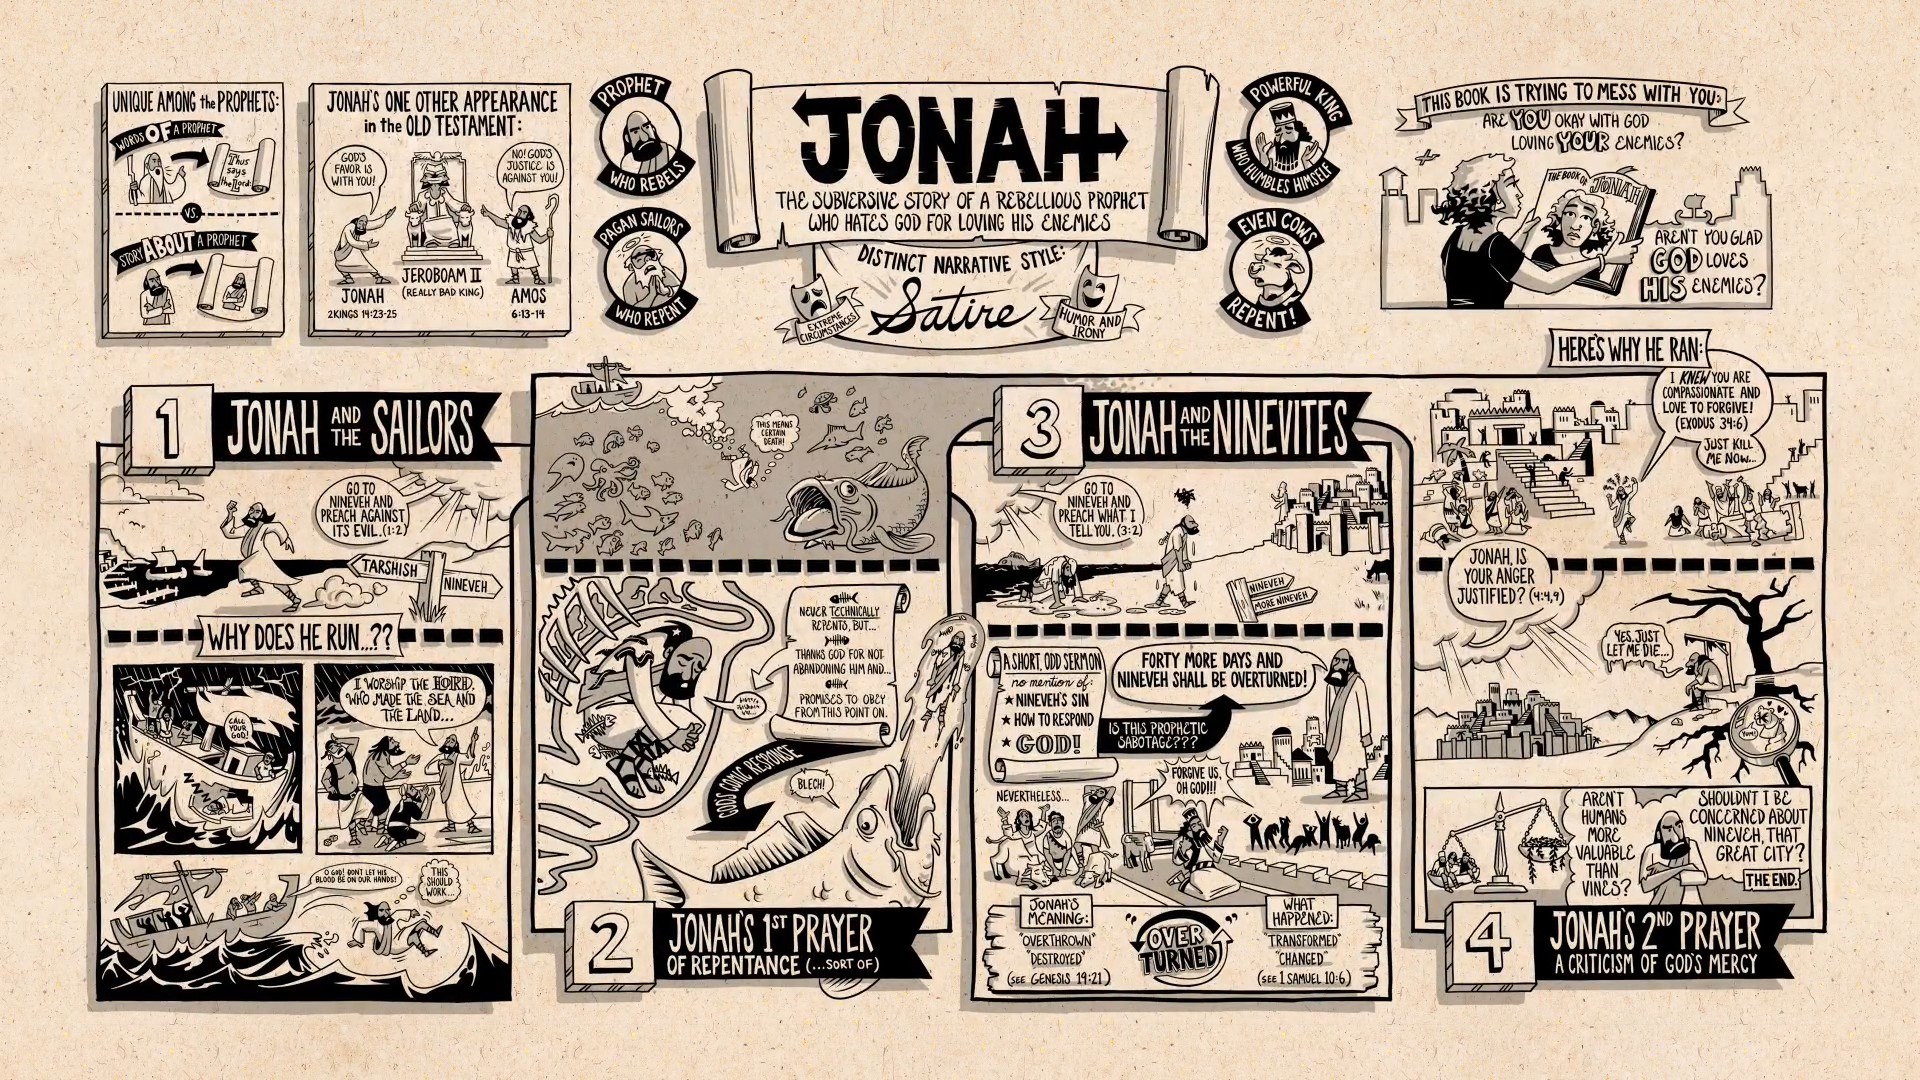 UNIQUE AMONG the PROPHETS:
WORDS OF A PROPHET
Thus
says
the Lord:
VS.
STORY ABOUT A PROPHET
JONAH'S ONE OTHER APPEARANCE
in the OLD TESTAMENT:
GOD'S
FAVOR IS
WITH YOU!
NO! GOD'S
JUSTICE IS
AGAINST YOU!
JONAH
2KINGS 14:23-25
JEROBOAM II
(REALLY BAD KING)
AMOS
6:13-14
PROPHET
WHO REBELS
PAGAN SAILORS
WHO REPENT
JONAH
THE SUBVERSIVE STORY OF A REBELLIOUS PROPHET
WHO HATES GOD FOR LOVING HIS ENEMIES
DISTINCT NARRATIVE STYLE:
Satire
EXTREME
CIRCUMSTANCES
HUMOR AND
IRONY
POWERFUL KING
WHO HUMBLES HIMSELF
EVEN COWS
REPENT!
THIS BOOK IS TRYING TO MESS WITH YOU:
ARE YOU OKAY WITH GOD
LOVING YOUR ENEMIES?
THE BOOK OF JONAH
AREN'T YOU GLAD
GOD LOVES
HIS ENEMIES?
1
JONAH AND THE SAILORS
GO TO
NINEVEH AND
PREACH AGAINST
ITS EVIL. (1:2)
TARSHISH
NINEVEH
WHY DOES HE RUN...??
CALL
YOUR
GOD!
I WORSHIP THE LORD,
WHO MADE THE SEA AND
THE LAND...
O GOD! DON'T LET HIS
BLOOD BE ON OUR HANDS!
THIS
SHOULD
WORK...
THIS MEANS
CERTAIN
DEATH!
NEVER TECHNICALLY
REPENTS, BUT...
THANKS GOD FOR NOT
ABANDONING HIM AND...
PROMISES TO OBEY
FROM THIS POINT ON.
GOD'S COMIC RESPONSE
BLECH!
2
JONAH'S 1ST PRAYER
OF REPENTANCE (...SORT OF)
3
JONAH AND THE NINEVITES
GO TO
NINEVEH AND
PREACH WHAT I
TELL YOU. (3:2)
NINEVEH
MORE NINEVEH
A SHORT, ODD SERMON
no mention of:
★ NINEVEH'S SIN
★ HOW TO RESPOND
★ GOD!
FORTY MORE DAYS AND
NINEVEH SHALL BE OVERTURNED!
IS THIS PROPHETIC
SABOTAGE???
NEVERTHELESS...
FORGIVE US,
OH GOD!!!
JONAH'S
MEANING:
"OVERTHROWN"
"DESTROYED"
(SEE GENESIS 19:21)
"OVER
TURNED"
WHAT
HAPPENED:
"TRANSFORMED"
"CHANGED"
(SEE 1 SAMUEL 10:6)
HERE'S WHY HE RAN:
I KNEW YOU ARE
COMPASSIONATE AND
LOVE TO FORGIVE!
(EXODUS 34:6)
JUST KILL
ME NOW...
JONAH, IS
YOUR ANGER
JUSTIFIED? (4:4,9)
YES. JUST
LET ME DIE...
YUM!
AREN'T
HUMANS
MORE
VALUABLE
THAN
VINES?
SHOULDN'T I BE
CONCERNED ABOUT
NINEVEH, THAT
GREAT CITY?
THE END.
4
JONAH'S 2ND PRAYER
A CRITICISM OF GOD'S MERCY